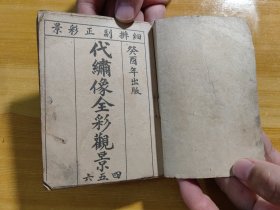 細辨副正彩景
癸酉年出版
代繡像全彩觀景
四五六